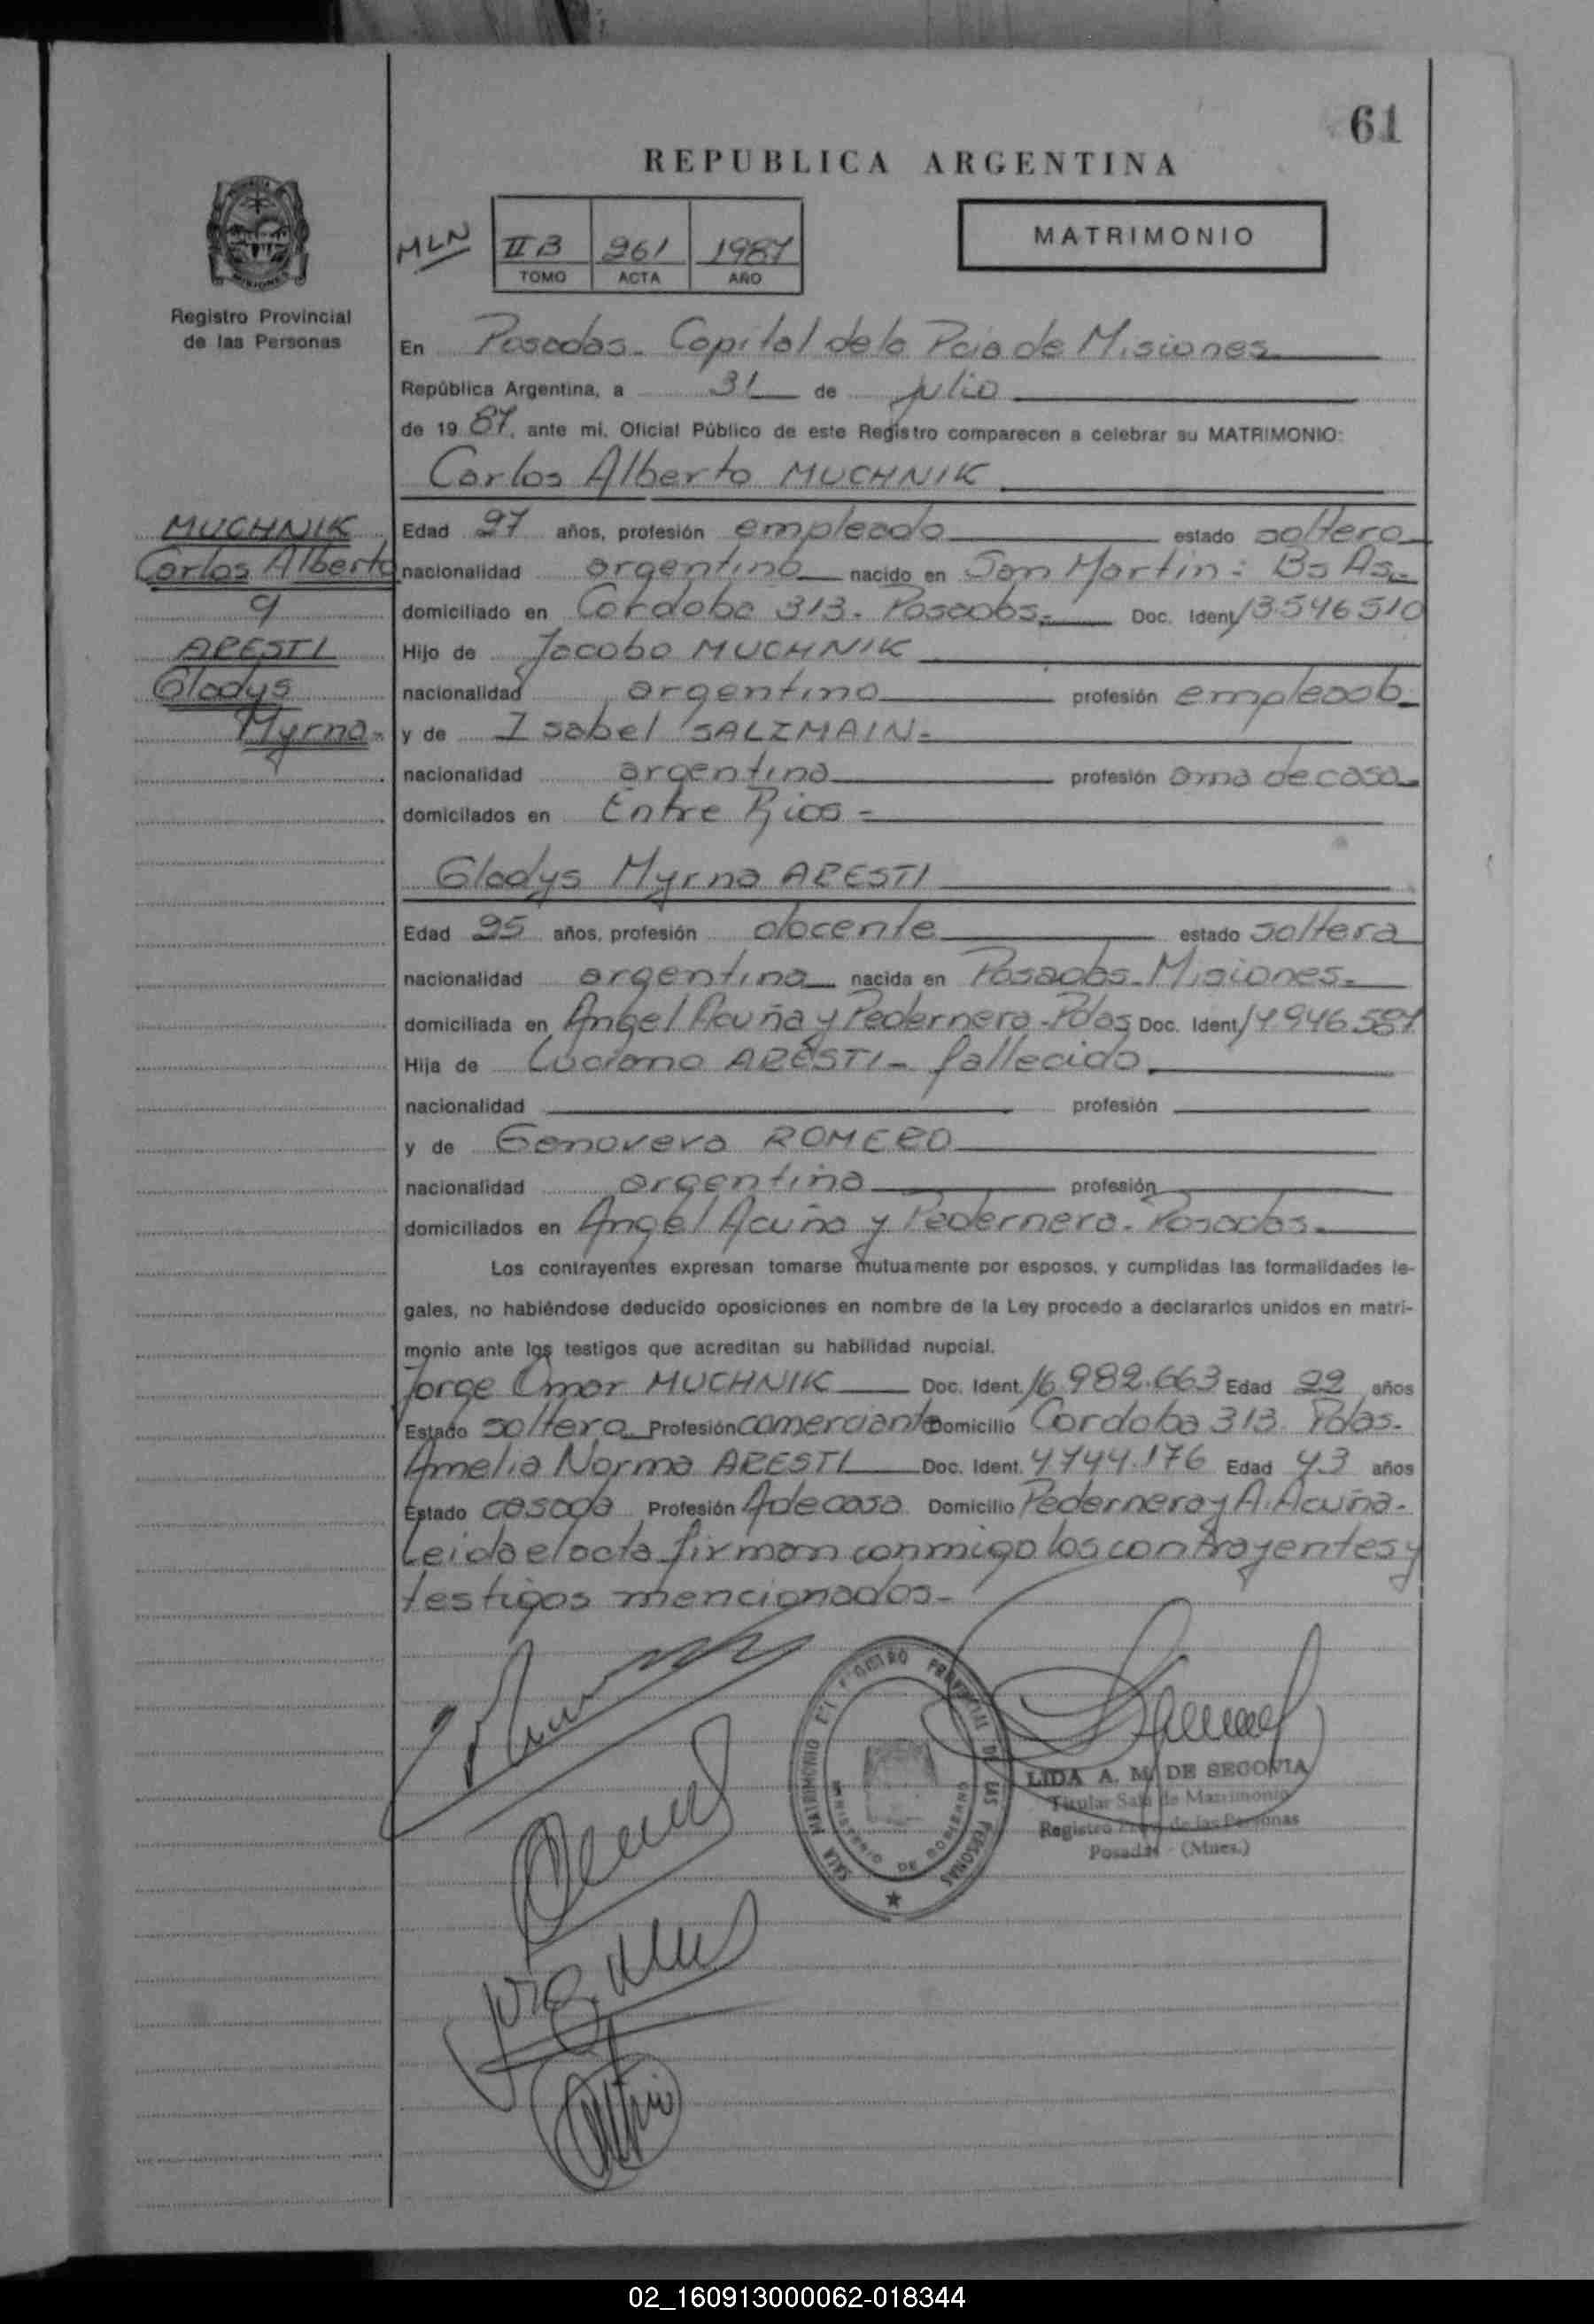 61
REPUBLICA ARGENTINA
MLN
II B 261 1987
TOMO ACTA AÑO
MATRIMONIO
Registro Provincial
de las Personas
En Posadas - Capital de la Pcia de Misiones
República Argentina, a 31 de julio
de 19 87, ante mi, Oficial Público de este Registro comparecen a celebrar su MATRIMONIO:
Carlos Alberto MUCHNIK
MUCHNIK
Carlos Alberto
y
ARESTI
Gladys
Myrna
Edad 27 años, profesión empleado estado soltero
nacionalidad argentino nacido en San Martin: Bs As.
domiciliado en Cordoba 313. Posadas. Doc. Ident. 13.546510
Hijo de Jacobo MUCHNIK
nacionalidad argentino profesión empleado
y de Isabel SALZMAIN.
nacionalidad argentina profesión ama de casa
domiciliados en Entre Rios -
Gladys Myrna ARESTI
Edad 25 años, profesión docente estado soltera
nacionalidad argentina nacida en Posadas - Misiones.
domiciliada en Angel Acuña y Pedernera - Pdas Doc. Ident. 14946.587
Hija de Luciano ARESTI - fallecido.
nacionalidad profesión
y de Genoveva ROMERO
nacionalidad argentina profesión
domiciliados en Angel Acuña y Pedernera. Posadas.
Los contrayentes expresan tomarse mutuamente por esposos, y cumplidas las formalidades le-
gales, no habiéndose deducido oposiciones en nombre de la Ley procedo a declararlos unidos en matri-
monio ante los testigos que acreditan su habilidad nupcial.
Jorge Omar MUCHNIK Doc. Ident. 16.982.663 Edad 22 años
Estado soltero Profesión comerciante Domicilio Cordoba 313. Pdas.
Amelia Norma ARESTI Doc. Ident. 4744.176 Edad 43 años
Estado casada Profesión A de casa Domicilio Pedernera y A. Acuña.
Leida el acta firman conmigo los contrayentes y
testigos mencionados.
SALA MATRIMONIO DEL REGISTRO PROVINCIAL DE LAS PERSONAS
MINISTERIO DE GOBIERNO
LIDA A. M. DE SEGOVIA
Titular Sala de Matrimonio
Registro Prov. de las Personas
Posadas (Mnes.)
02_160913000062-018344